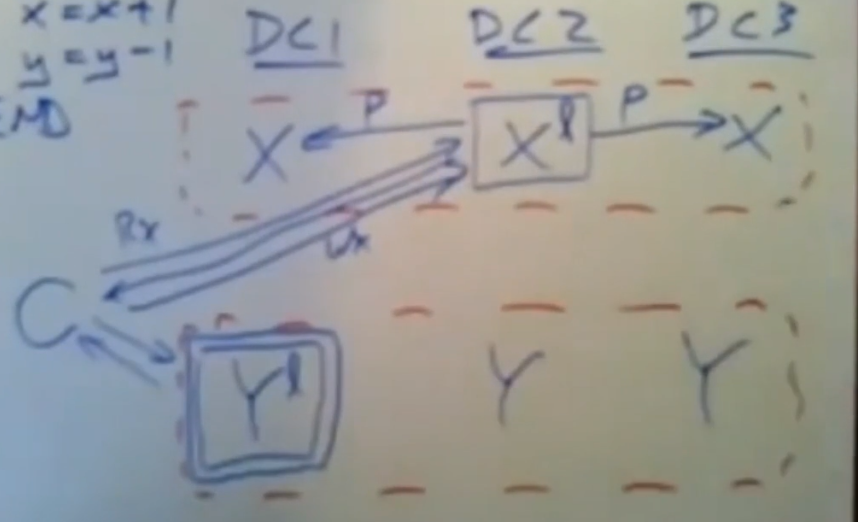 x=x+1
y=y-1
END
DC1 DC2 DC3
X P X l P X
Rx Wx
C
Y l Y Y